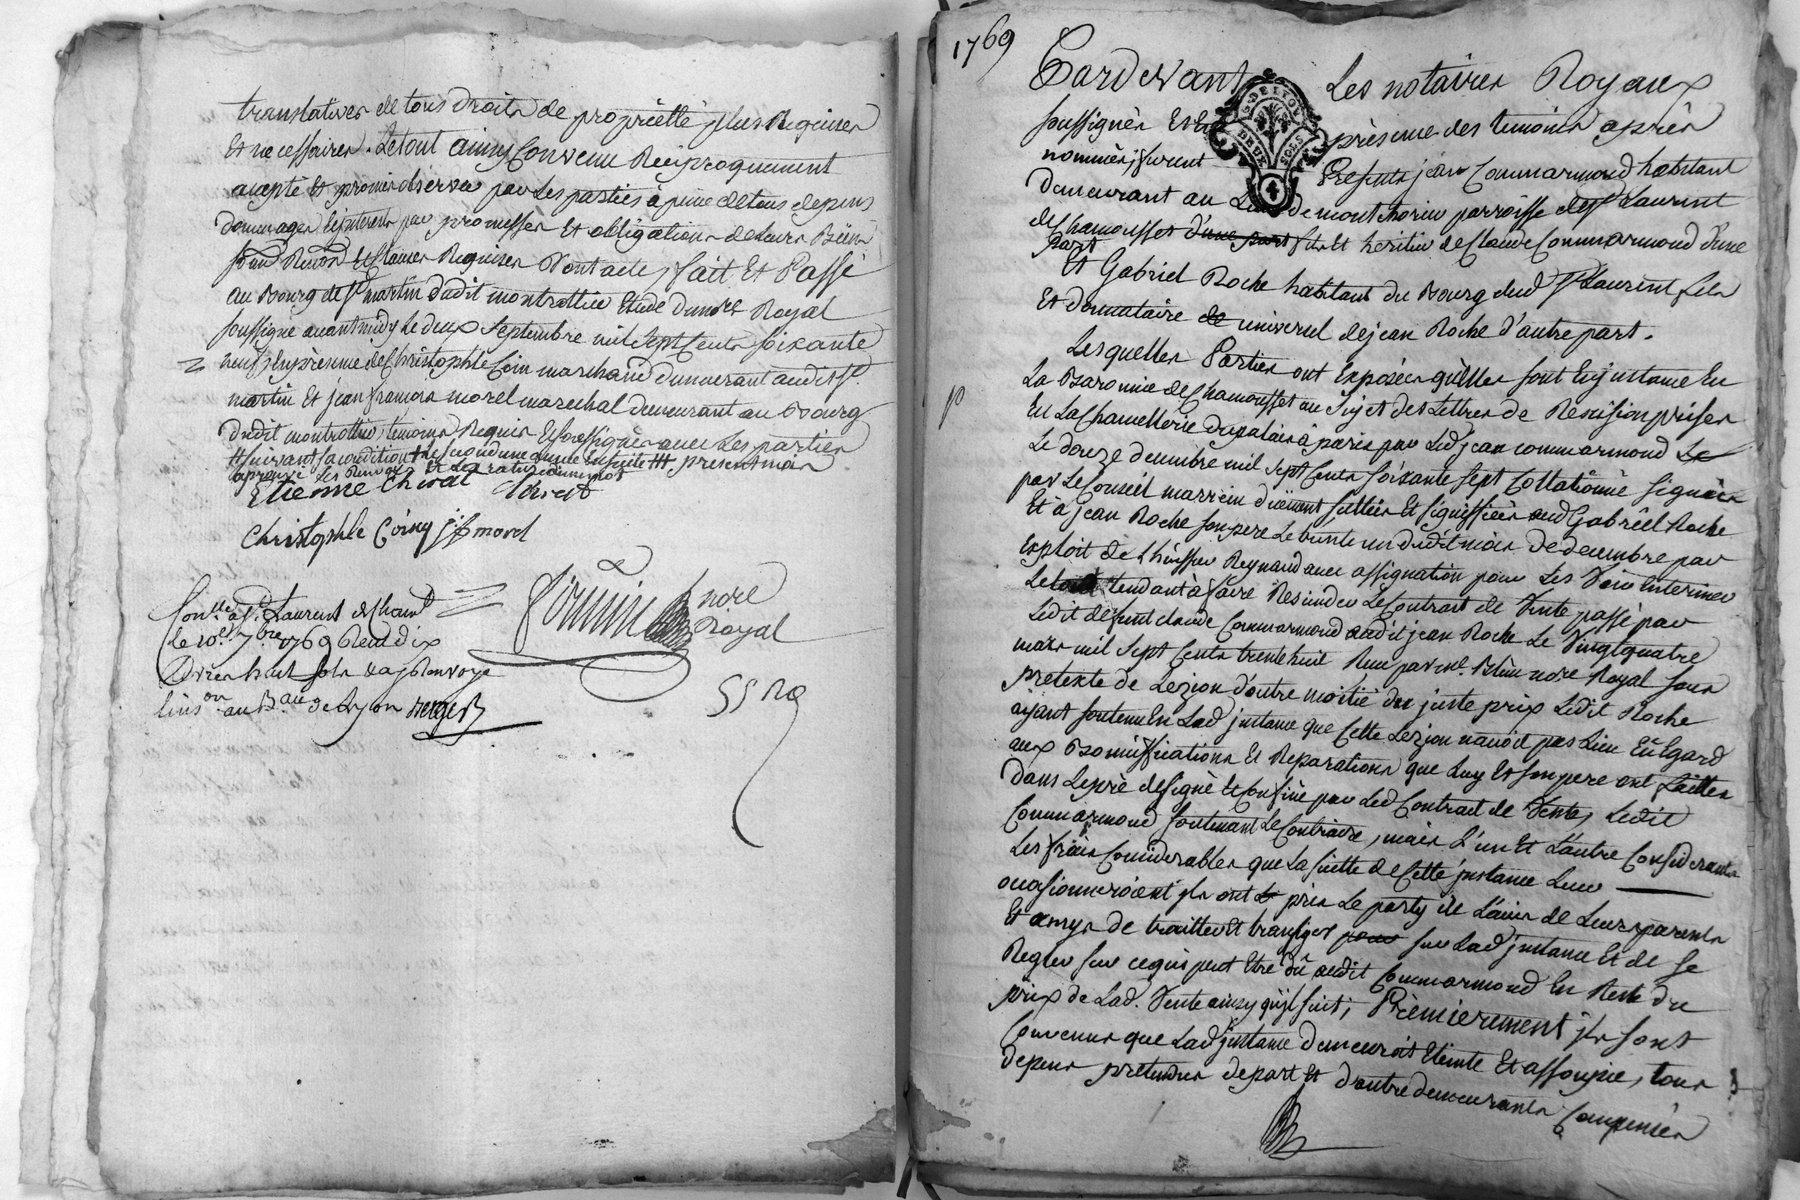 translatives de tous droits de propriètté plus Requises
Et necessaires. Le tout ainsy Convenu Reciproquement
accepté Et promis observer par Les parties à peine de tous depens
dommages Et interests par promesses Et obligations de Leurs Biens
Renon Et Clauses Requises Dont acte, fait Et Passé
au Bourg de St martin dudit montrottier Etude du nore Royal
soussigné avant midy Le deux Septembre mil Sept Cents soixante
neuf, En prèsence de Christophle Coin marchand demeurant audit St.
martin Et jean françois morel marechal demeurant au Bourg
dudit montrottier, temoins Requis Et soussignès avec Les parties
suivant la condition
aprouvé Les Renvoys Et Les ratures
Etienne Chirat Chirat
Christophle Coiny jf morel
nore
Royal
Conllé à St Laurent de Cham.t
le 10e. 7bre 1769 Reçu dix
Livres huit sols
lins.on au B.au de Lyon Berger
1769
Pardevant Les notaires Royaux
G. DE LYON
DEUX SOLS
4
soussignès Et En prèsence des temoins après
nommès, furent Presents jean Commarmond habitant
demeurant au Lieu de montchorin parroisse de St Laurent
de Chamousset d'une part fils Et heritier de Claude Commarmond d'une
part
Et Gabriel Roche habitant du Bourg dud St Laurent fils
Et donnataire de universel de jean Roche d'autre part.
Lesquelles Parties ont Exposées qu'elles sont En jnstance En
La Baronnie de Chamousset au Sujet des Lettres de Rescision prises
En La Chancellerie du palais à paris par Led jean commarmond Le
Le douze decembre mil Sept Cents soixante sept Collationnè signèes
par Le Conseil marrein duement scellées Et signiffièes aud Gabriel Roche
Et à jean Roche son pere Le trente un dudit mois de decembre par
Exploit de L'huissier Reynaud avec assignation pour Les Voir Enteriner
Le tout tendant à faire Rescinder Le Contrat de Vente passé par
Ledit deffunt claude Commarmond audit jean Roche Le Vingtquatre
mars mil Sept Cents trente huit Reçu par me. Blein nore Royal sous
pretexte de Lezion d'outre moitié du juste prix Ledit Roche
ayant soutenu En Lad jnstance que Cette Lezion n'avoit pas Lieu En Egard
aux Bonniffications Et Reparations que Luy Et son pere ont faittes
dans Le prè designè Et Confinè par Led Contract de Vente, Ledit
Commarmond soutenant Le Contraire, mais L'un Et L'autre Considerants
Les frais Considerables que La Suitte de Cette jnstance Leur
occasionneroient jls ont Le pris Le party de L'avis de Leurs parents
Et amys de traitter Et transiger pour sur Lad jnstance Et de se
Regler sur ce qui peut Etre dû audit Commarmond En Reste du
prix de Lad. Vente ainsy qu'il suit; Prèmierement jls sont
Convenus que Lad jnstance demeurera Eteinte Et assoupie, tous
depens pretendus de part Et d'autre demeurants Compensés